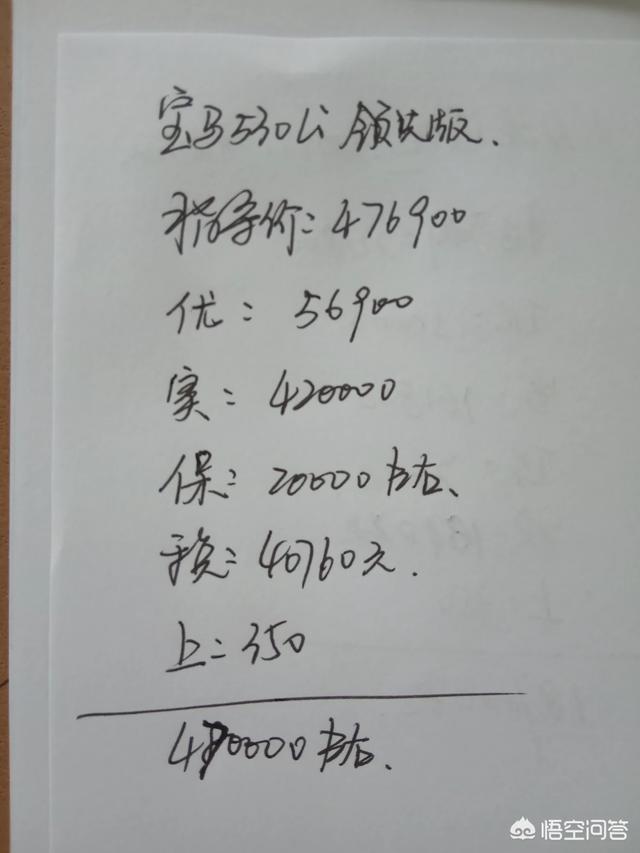 宝马530Li 领先版.
指导价: 476900
优: 56900
实: 420000
保: 20000左右、
税: 40760元.
上: 350
470000左右、
悟空问答